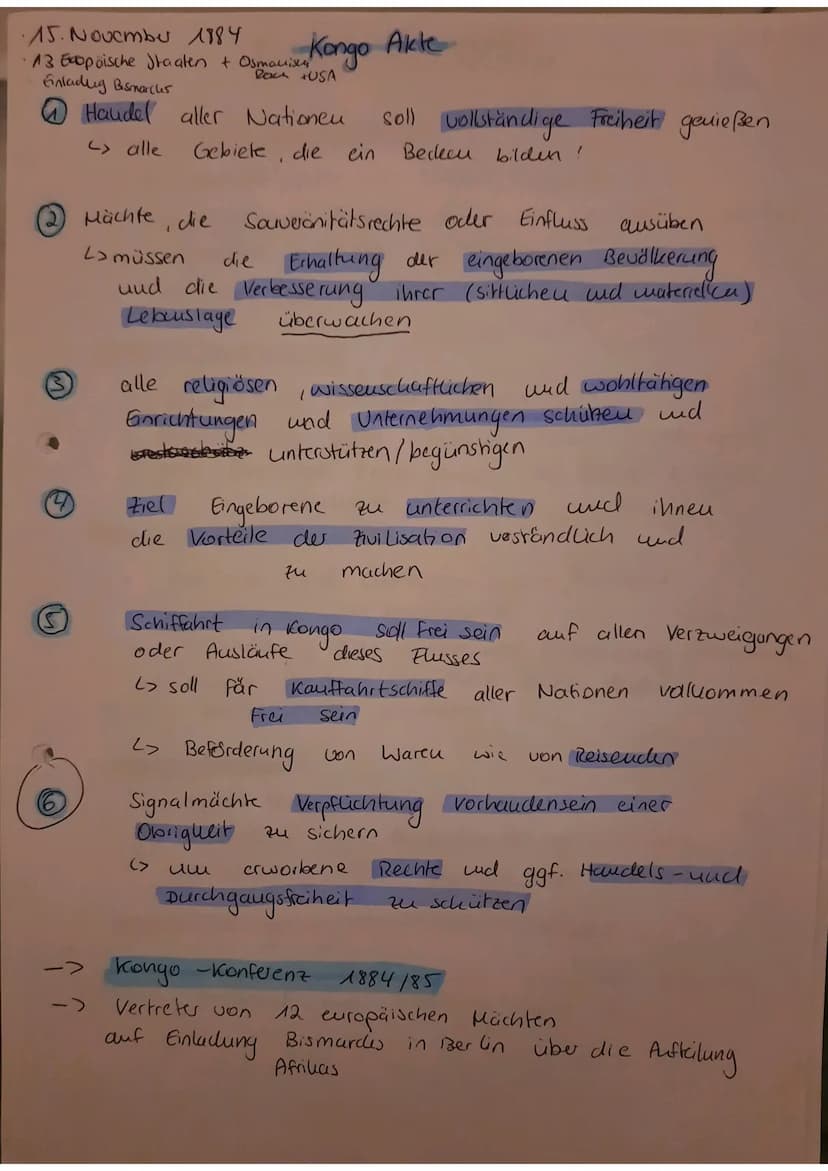 15. November 1884
Kongo Akte
13 Eropäische Staaten + Osmanisch
Reich + USA
Einladug Bismarcks
1 Handel aller Nationen soll vollständige Freiheit genießen
↳ alle Gebiete, die ein Becken bilden!
2 Mächte, die Souveränitätsrechte oder Einfluss ausüben
↳ müssen die Erhaltung der eingeborenen Bevölkerung
und die Verbesserung ihrer (sittlichen und materiellen)
Lebenslage überwachen
3 alle religiösen, wissenschaftlichen und wohltätigen
Einrichtungen und Unternehmungen schützen und
unterstützen/begünstigen
4 Ziel Eingeborene zu unterrichten und ihnen
die Vorteile der Zivilisation veständlich und
zu machen
5 Schiffahrt in Kongo soll Frei sein auf allen Verzweigungen
oder Ausläufe dieses Flusses
↳ soll für Kauffahrtschiffe aller Nationen vollkommen
Frei sein
↳ Beförderung von Waren wie von Reisenden
6 Signalmächte Verpflichtung vorhandensein einer
Obrigkeit zu sichern
↳ um erworbene Rechte und ggf. Handels- und
Durchgangsfreiheit zu schützen
-> Kongo-Konferenz 1884/85
-> Vertreter von 12 europäischen Mächten
auf Einladung Bismarcks in Berlin über die Aufteilung
Afrikas